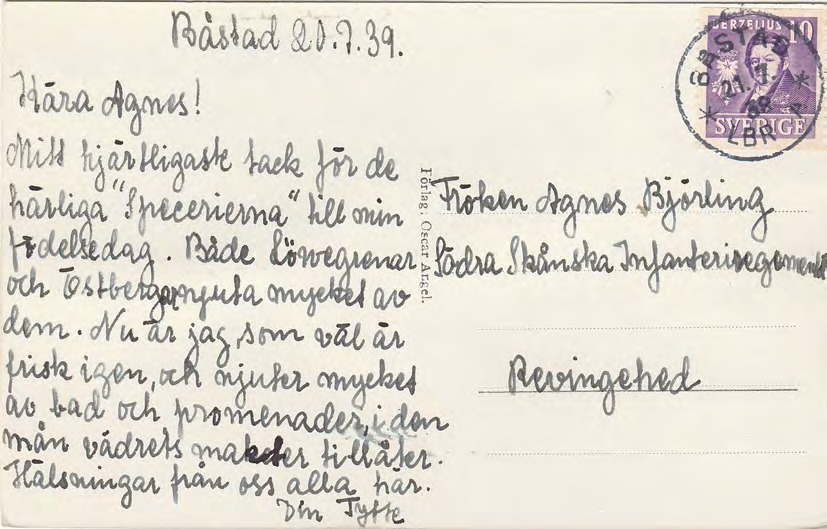 Båstad 20.7.39.
Kära Agnes!
Mitt hjärtligaste tack för de
härliga "Specerierna" till min
födelsedag. Både Löwegrenar
och Östbergar njuta mycket av
dem. Nu är jag, som väl är
frisk igen, och njuter mycket
av bad och promenader, i den
mån vädrets makter tillåter.
Hälsningar från oss alla här.
Din Tytte
Förlag: Oscar Angel.
BERZELIUS 10
SVERIGE
BÅSTAD
21.7.
39
* LBR *
Fröken Agnes Björling
Södra Skånska Infanteriregementet
Revingehed